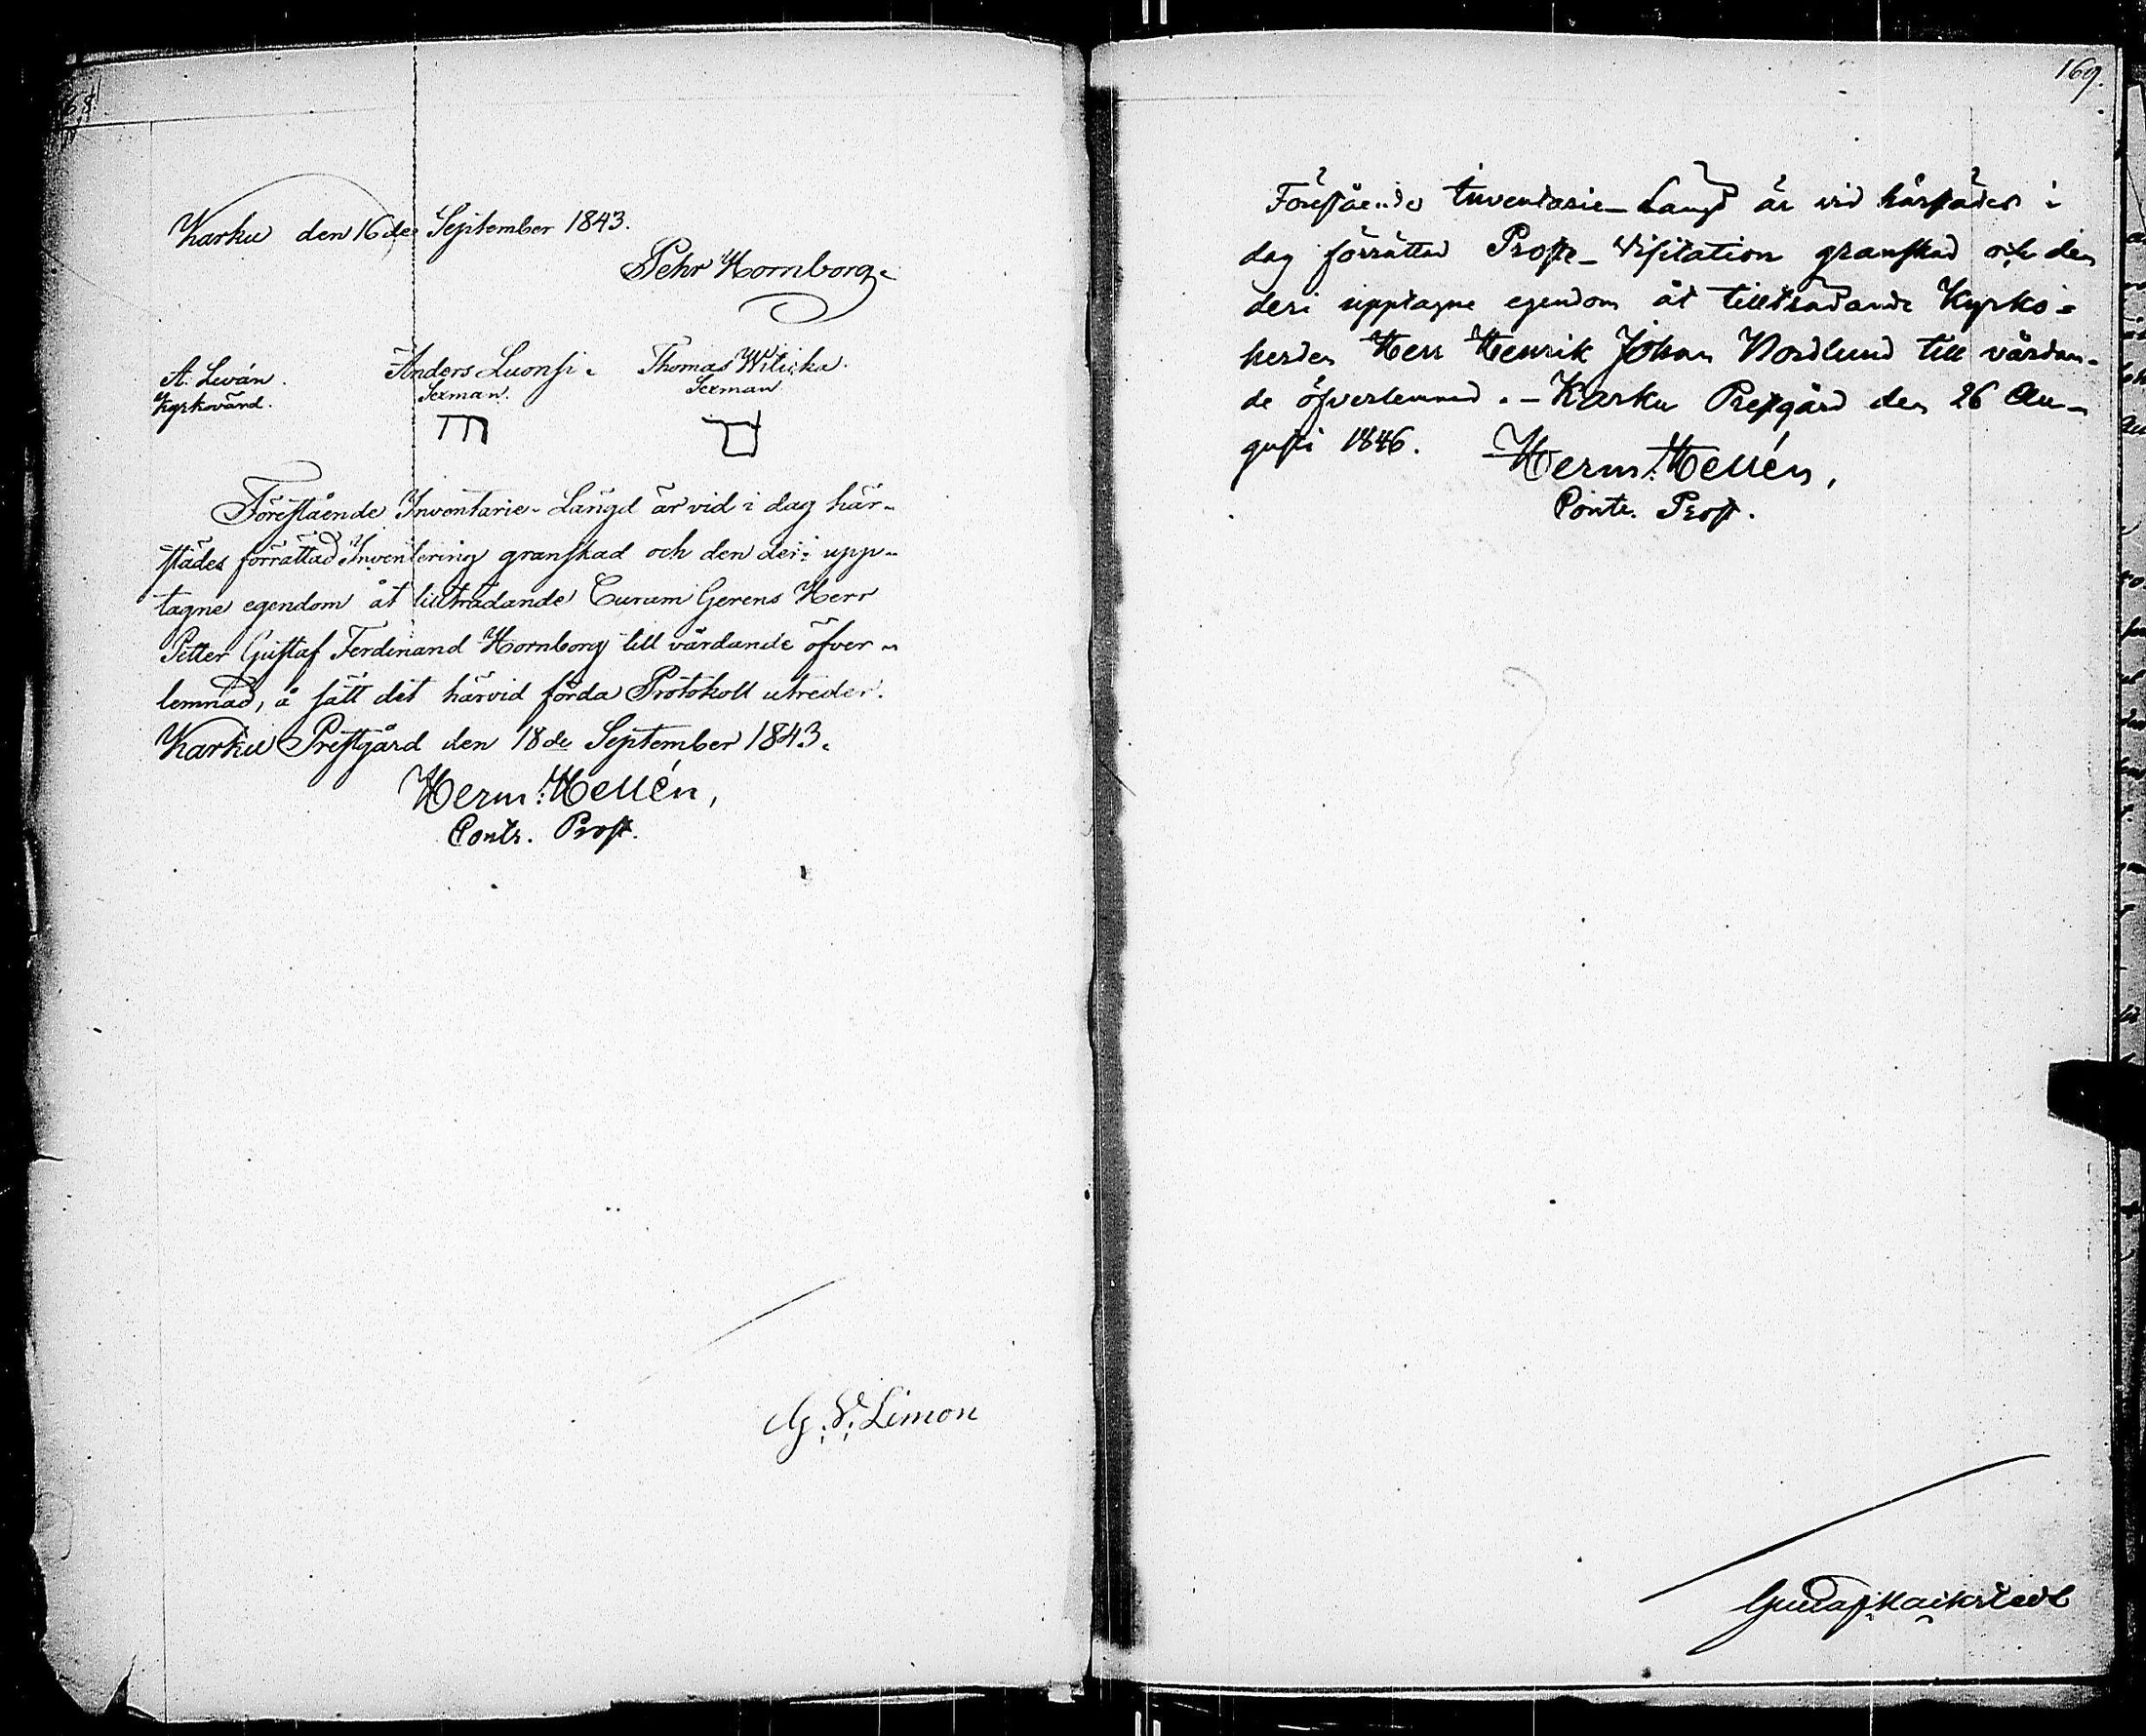 68.
Karku den 16de September 1843.
Pehr Hornborg.
A. Leván. Anders Luonsi. Thomas Wilicka.
Kyrkovärd. Sexman. Sexman
Förestående Inventarie-Längd är vid i dag här-
städes förrättad Inventering granskad och den deri upp-
tagne egendom åt tillträdande Curam Gerens Herr
Petter Gustaf Ferdinand Hornborg till vårdande öfver-
lemnad, å sätt det härvid förda Protokoll utreder.
Karku Prestgård den 18de September 1843.
Herm: Hellén,
Contr. Prost.
G. V. Limon
169.
Förestående Inventarie-Längd är vid härstädes i
dag förrättad Prosts-Visitation granskad och den
deri upptagne egendom åt tillträdande Kyrko-
herden Herr Henrik Johan Nordlund till vårdan-
de öfverlemnad. - Karku Prestgård den 26 Au-
gusti 1846.
Herm: Hellén,
Contr. Prost.
Gustaf